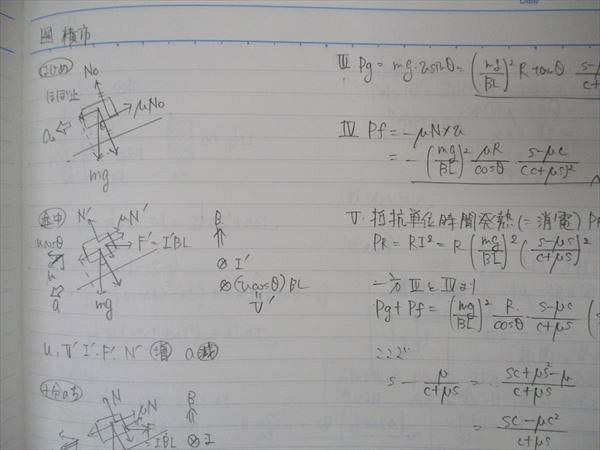 図 横市
はじめ
No
ほぼ止
μNo
a
mg
途中
N'
μN'
B
ucosθ
F'=I'BL
u
⊗ I'
a
⊗(ucosθ)BL
mg
V'
u, V' I'. F' N' 増 a 減
十分のち
N
μN
B
IBL
⊗ I
Ⅲ Pg = mg・usinθ = (mg/BL)² R tanθ
Ⅳ Pf = -μN×u
= -(mg/BL)² μR/cosθ・(s-μc)/(c+μs)²
Ⅴ. 抵抗単位時間発熱(=消電)
PR = RI² = R(mg/BL)²
一方ⅢとⅣより
Pg+Pf = (mg/BL)² R/cosθ・(s-μc)/(c+μs)
ここで
s - μ/(c+μs) = (sc+μs²-μ)/(c+μs)
= (sc-μc²)/(c+μs)